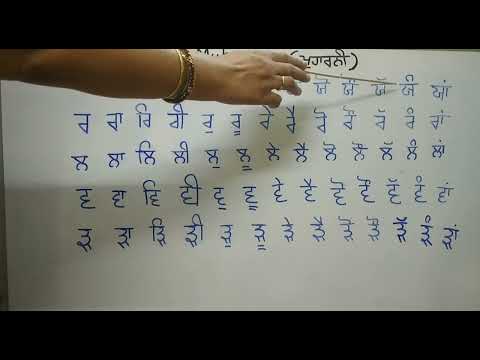 (ਮੁਹਾਰਨੀ)
ਯੋ ਯੌ ਯੱ ਯੰ ਯਾਂ
ਰ ਰਾ ਰਿ ਰੀ ਰੁ ਰੂ ਰੇ ਰੈ ਰੋ ਰੌ ਰੱ ਰੰ ਰਾਂ
ਲ ਲਾ ਲਿ ਲੀ ਲੁ ਲੂ ਲੇ ਲੈ ਲੋ ਲੌ ਲੱ ਲੰ ਲਾਂ
ਵ ਵਾ ਵਿ ਵੀ ਵੁ ਵੂ ਵੇ ਵੈ ਵੋ ਵੌ ਵੱ ਵੰ ਵਾਂ
ੜ ੜਾ ੜਿ ੜੀ ੜੁ ੜੂ ੜੇ ੜੈ ੜੋ ੜੌ ੜੱ ੜੰ ੜਾਂ